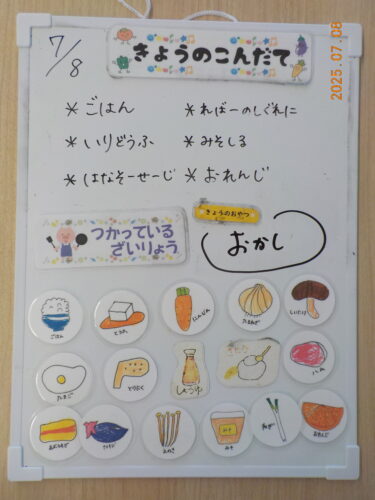 2025.07.08
きょうのこんだて
7/8
*ごはん
*ればーのしぐれに
*いりどうふ
*みそしる
*はなそーせーじ
*おれんじ
つかっている
ざいりょう
きょうのおやつ
おかし
ごはん
とうふ
にんじん
たまねぎ
しいたけ
たまご
とりにく
しょうゆ
さとう
ハム
あぶらあげ
えのき
みそ
みそ
ねぎ
おれんじ